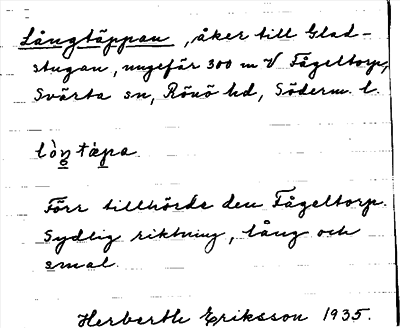 Långtäppan, åker till Glad-
stugan, ungefär 300 m V Fågeltorp,
Svärta sn, Rönö hd, Söderm. l.
lòŋ tæpa.
Förr tillhörde den Fågeltorp.
Sydlig riktning, lång och
smal.
Herberth Eriksson 1935.